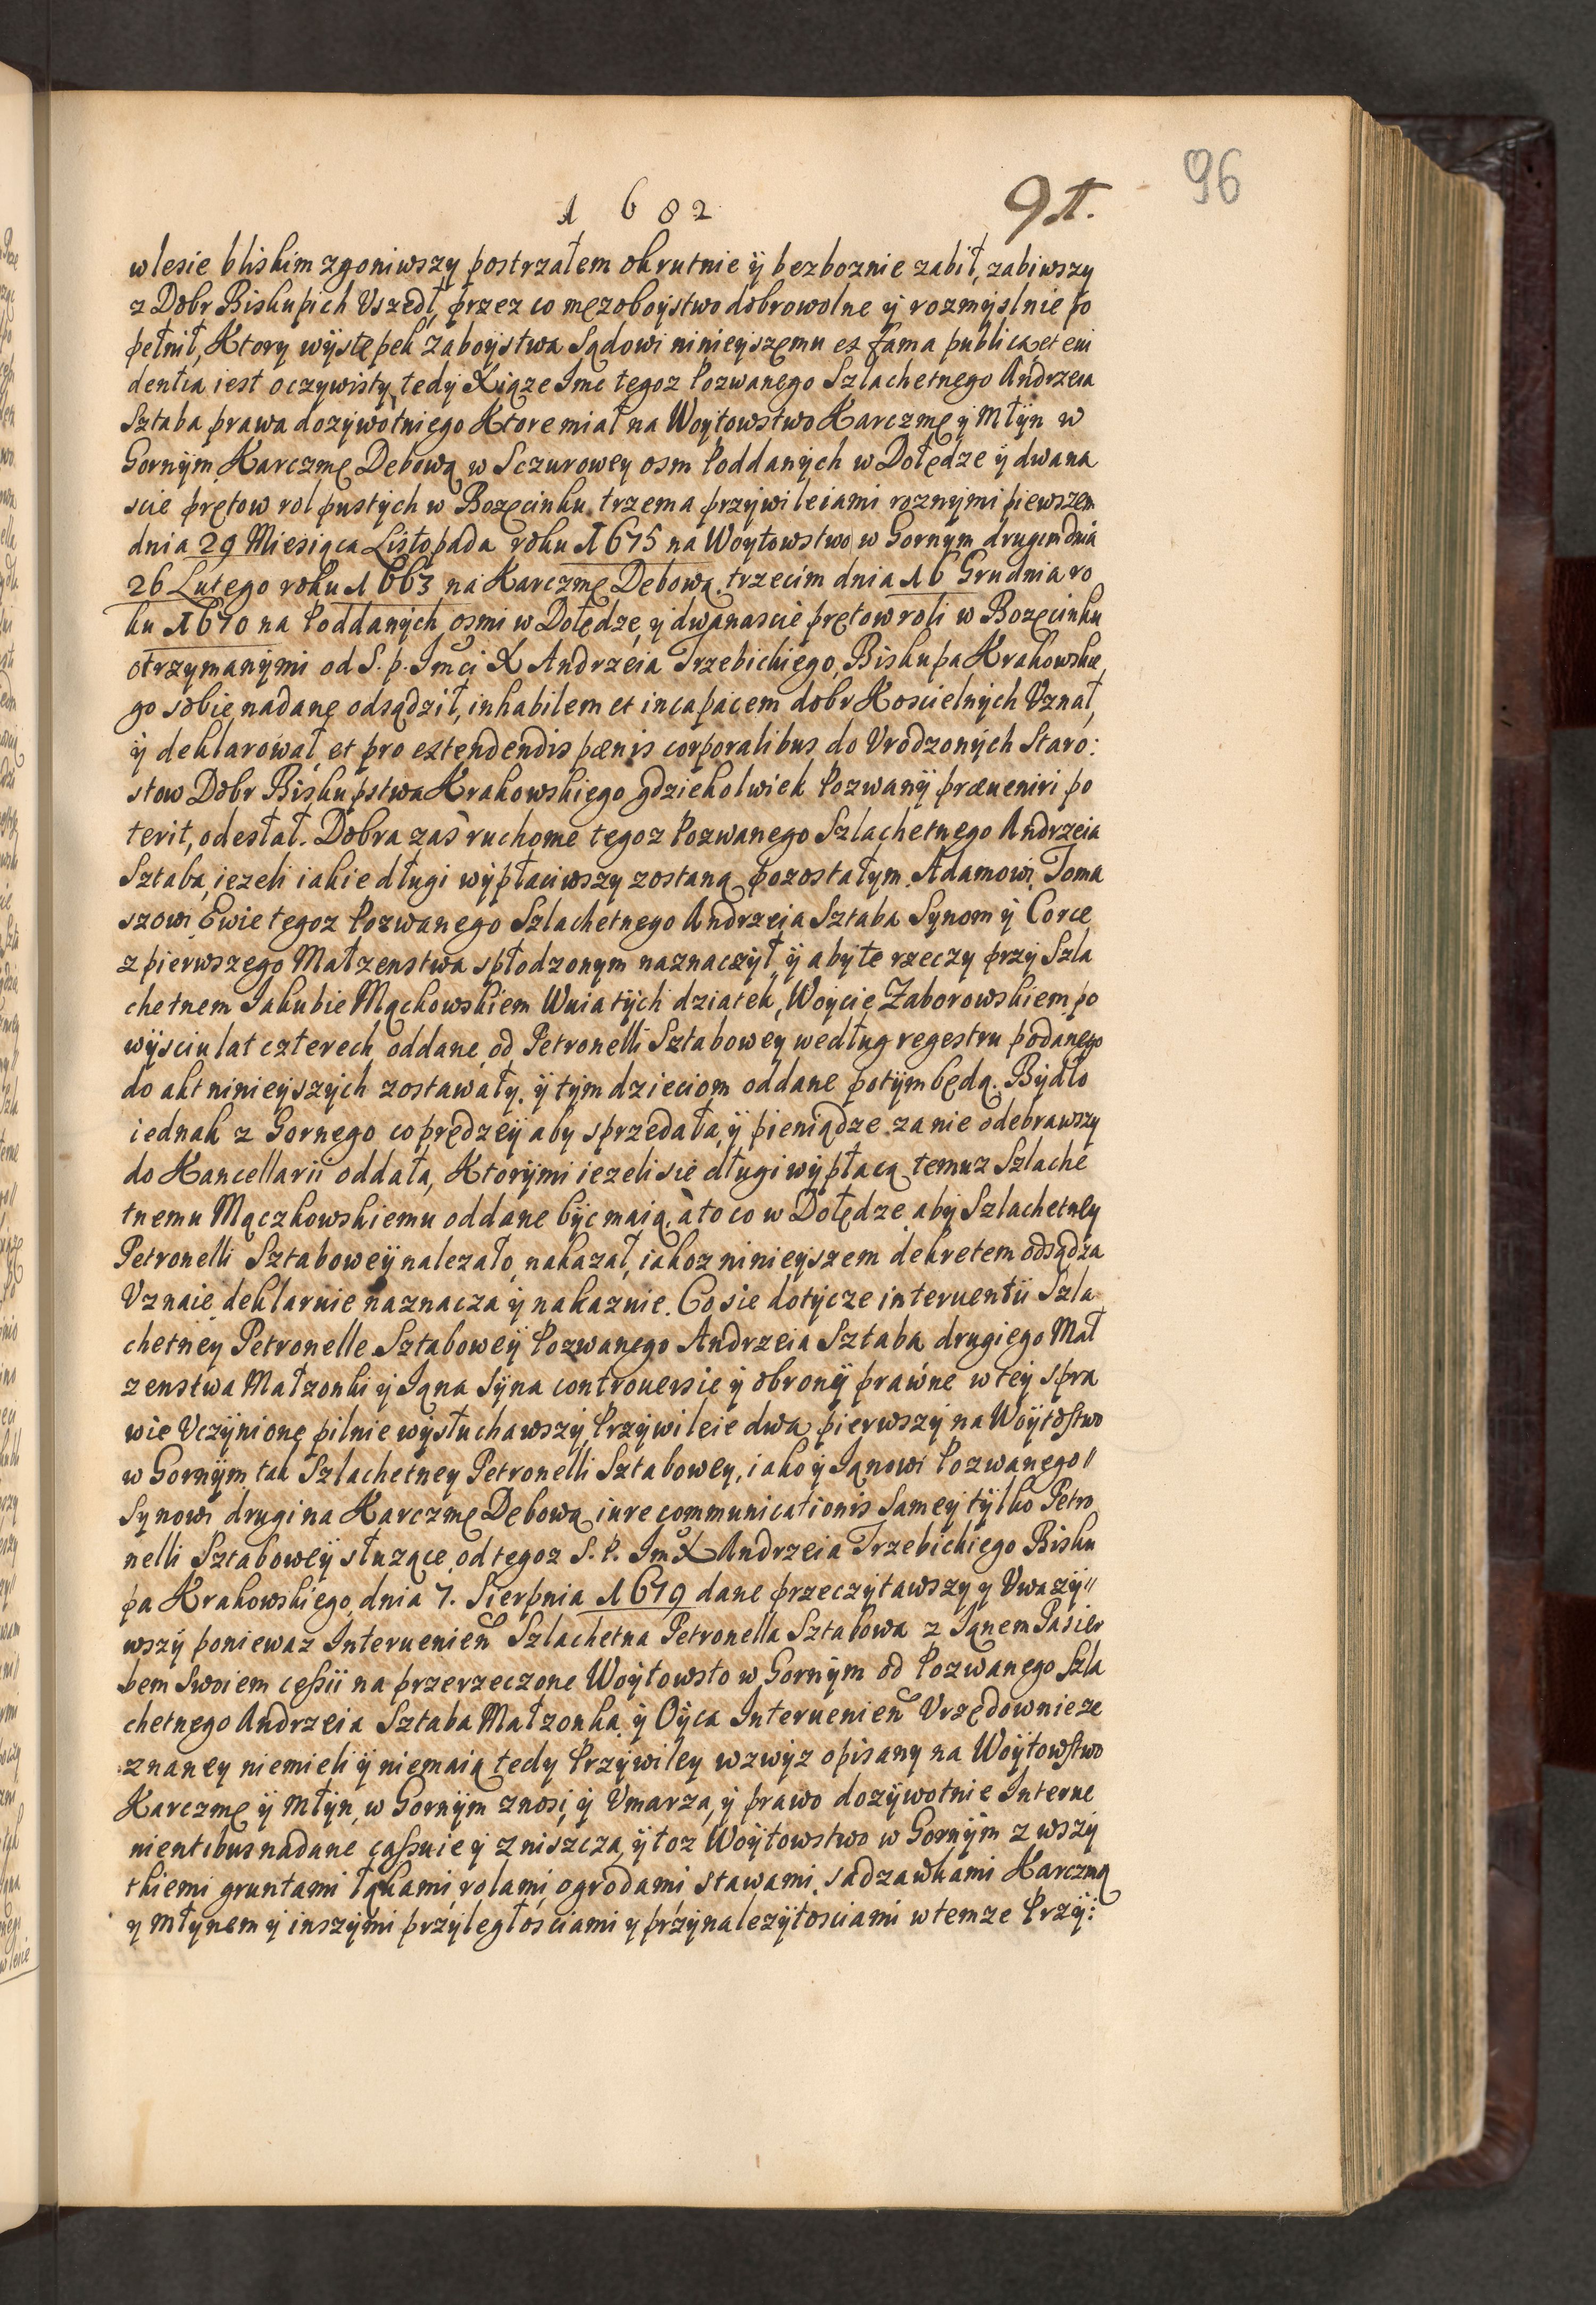 96
1682
91.
w lesie bliskim zgoniwszy postrzałem okrutnie ÿ bezboznie zabił, zabiwszy
z Dobr Biskupich Vszedł, przez co męzoboystwo dobrowolne ÿ rozmyslnie po
pełnił, Ktory występek zaboystwa Sądowi ninieyszemu ex fama publica et eui
dentia iest oczywisty, tedy Xiąze Jmc tegoz Pozwanego Szlachetnego Andrzeia
Sztaba prawa dozywotniego Ktore miał na Woytowstwo Karczmę ÿ Młÿn w
Gornÿm, Karczmę Debową w Sczurowey osm Poddanÿch w Dołędze ÿ dwana
scie prętow rol pustÿch w Bozęcinku, trzema przÿwileiami roznÿmi piewszem
dnia 29 Miesiąca Listopada roku 1675 na Woytowstwo w Gornym drugim dnia
26 Lutego roku 1663 na Karczmę Debową, trzecim dnia 16 Grudnia ro
ku 1670 na Poddanÿch osmi w Dołędze, y dwanascie prętow roli w Bozęcinku
otrzymanÿmi od S. p. Jmci X Andrzeia Trzebickiego, Biskupa Krakowskie
go sobie nadane odsądził, inhabilem et incapacem dobr Koscielnÿch Vznał,
ÿ deklarował, et pro extendendis pænis corporalibus do Vrodzonÿch Staro:
stow Dobr Biskupstwa Krakowskiego gdziekolwiek Pozwanÿ præueniri po
terit, odesłał. Dobra zas ruchome tegoz Pozwanego Szlachetnego Andrzeia
Sztaba, iezeli iakie długi wÿpłaciwszy zostaną pozostałym, Adamowi, Toma
szowi, Ewie tegoz Pozwanego Szlachetnego Andrzeia Sztaba Synom ÿ Corce
z pierwszego Małzenstwa spłodzonym naznaczÿł, ÿ aby te rzeczy przÿ Szla
chetnem Jakubie Mąckowskiem Wuia tÿch dziatek, Woycie Zaborowskiem, po
wÿsciu lat czterech oddane, od Petronelli Sztabowey według regestru podanego
do akt ninieyszÿch zostawałÿ, ÿ tÿm dzieciom oddane potÿm będą. Bydło
iednak z Gornego co prędzeÿ aby sprzedała, ÿ pieniądze za nie odebrawszy
do Kancellarii oddała, Ktorÿmi iezeli sie długi wÿpłacą, temuz Szlache
tnemu Mączkowskiemu oddane bÿc maią, a to co w Dołędze, abÿ Szlachetney
Petronelli Sztaboweÿ nalezało, nakazał, iakoz ninieyszem dekretem odsądza
Vznaie deklaruie naznacza ÿ nakazuie. Co sie dotÿcze interuentÿ Szla
chetneÿ Petronelle Sztaboweÿ Pozwanego Andrzeia Sztaba drugiego Mał
zenstwa Małzonki ÿ Jąna Sÿna controuersie ÿ obronÿ prawne w teÿ spra
wie Vczÿnione, pilnie wÿsłuchawszÿ, Przÿwileie dwa, pierwszÿ na Woÿtostwo
w Gornÿm, tak Szlachetney Petronelli Sztabowey, iako ÿ Jąnowi Pozwanego //
Synowi, drugi na Karczmę Debową iure communicationis Sameÿ tÿlko Petro
nelli Sztaboweÿ słuzące, od tegoz S. P. Jmc X Andrzeia Trzebickiego Bisku
pa Krakowskiego, dnia 7. Sierpnia 1679 dane przeczÿtawszy y Vwazÿ//
wszÿ poniewaz Interuenien Szlachetna Petronella Sztabowa z Jąnem Pasier
bem Swoiem cessii na przerzeczone Woÿtowsto w Gornÿm od Pozwanego Szla
chetnego Andrzeia Sztaba Małzonka ÿ Oÿca Interuenien Vrzędownie ze
znaneÿ niemieli ÿ niemaią tedy Przÿwiley wzwÿz opisany na Woÿtowstwo
Karczmę ÿ Młÿn, w Gornÿm znosi, ÿ Vmarza, ÿ prawo dozÿwotnie Interue
nientibus nadane, cassuie ÿ zniszcza, ÿ toz Woÿtowstwo w Gornÿm z wszÿ
tkiemi gruntami łąkami, rolami, ogrodami stawami, sadzawkami Karczmą
y Młynem ÿ inszÿmi przÿległosciami y przÿnalezÿtosciami w temze Przÿ: